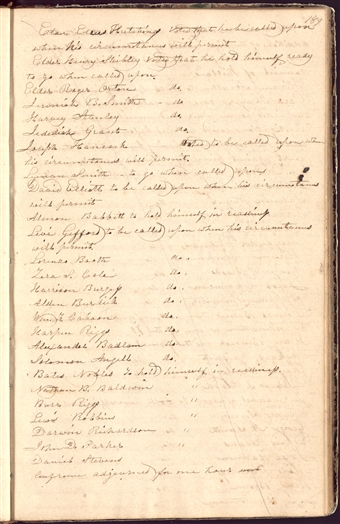 189
Elder Elias Hutchings Voted that he be called upon
when his circumstances will permit
Elder Henry Shibley Voted that he hold himself ready
to go when called upon
Elder Roger Orton do.
Jeremiah B. Smith do
Harvey Stanley do
Jedediah Grant do.
Joseph Hancock Voted to be called upon when
his circumstances will permit.
Lyman Smith to go when called upon
David Elliott to be called upon when his circumstances
will permit
Almon Babbitt to hold himself in readiness
Levi Gifford to be called upon when his circumstances
will permit
Lorenzo Booth do.
Zera S. Cole do.
Harrison Burgess do.
Alden Burdick do.
Wm. F. Cahoon do.
Harpin Riggs do.
Alexander Badlam do.
Solomon Angell do.
Bates Nobles to hold himself in readiness.
Nathan B. Baldwin
Burr Riggs " "
Lewis Robbins "
Darwin Richardson "
John D. Parker
Daniel Stevens
adjourned for one hour